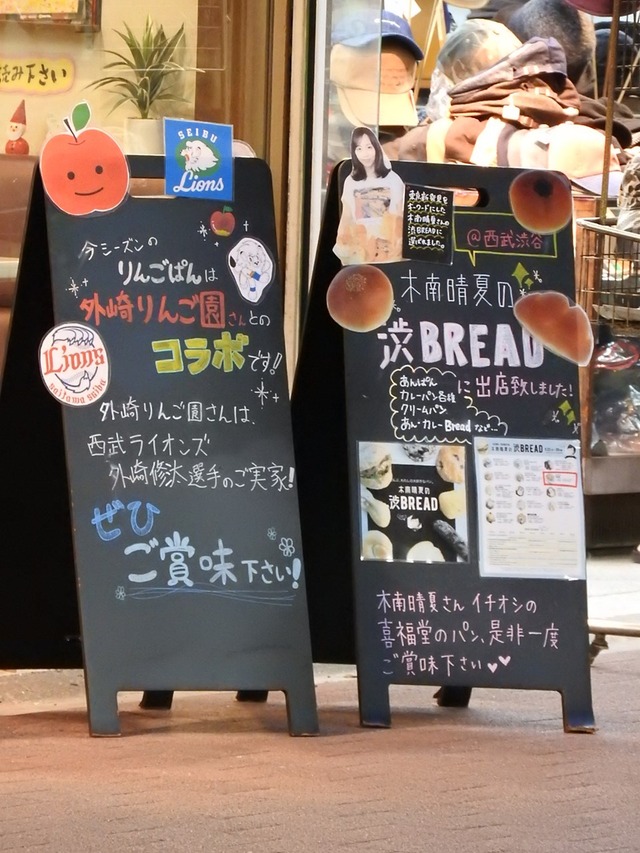 読み下さい
SEIBU
Lions
今シーズンの
りんごぱんは
外崎りんご園さんとの
コラボです!!
Lions
外崎りんご園さんは、
西武ライオンズ
外崎修汰選手のご実家!
ぜひ
ご賞味下さい!
キーワードにした
木南晴夏さんの
渋BREADに
選ばれました。
@西武渋谷
木南晴夏の
渋BREAD
に出店致しました!
あんぱん
カレーパン各種
クリームパン
あん・カレーBreadなど…
木南晴夏の
渋BREAD
渋BREAD
2
木南晴夏さんイチオシの
喜福堂のパン、是非一度
ご賞味下さい